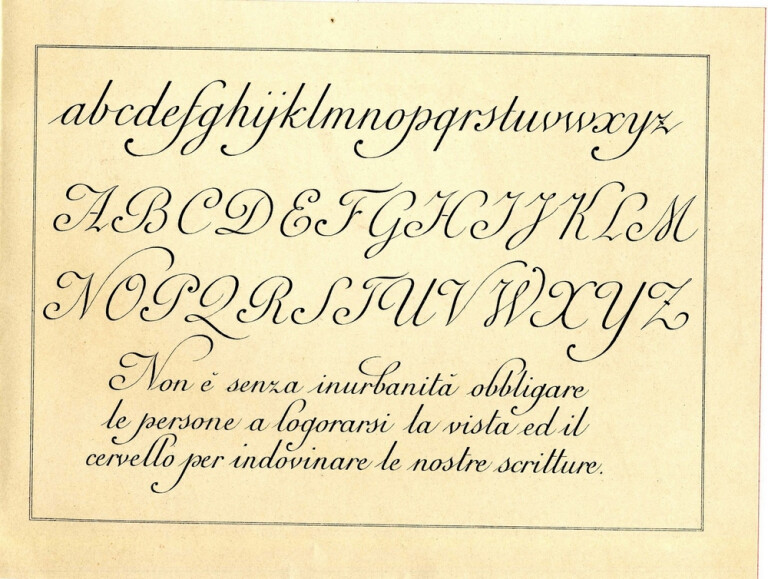 abcdefghijklmnopqrstuvwxyz
ABCDEFGHIJKLM
NOPQRSTUVWXYZ
Non è senza inurbanità obbligare
le persone a logorarsi la vista ed il
cervello per indovinare le nostre scritture.